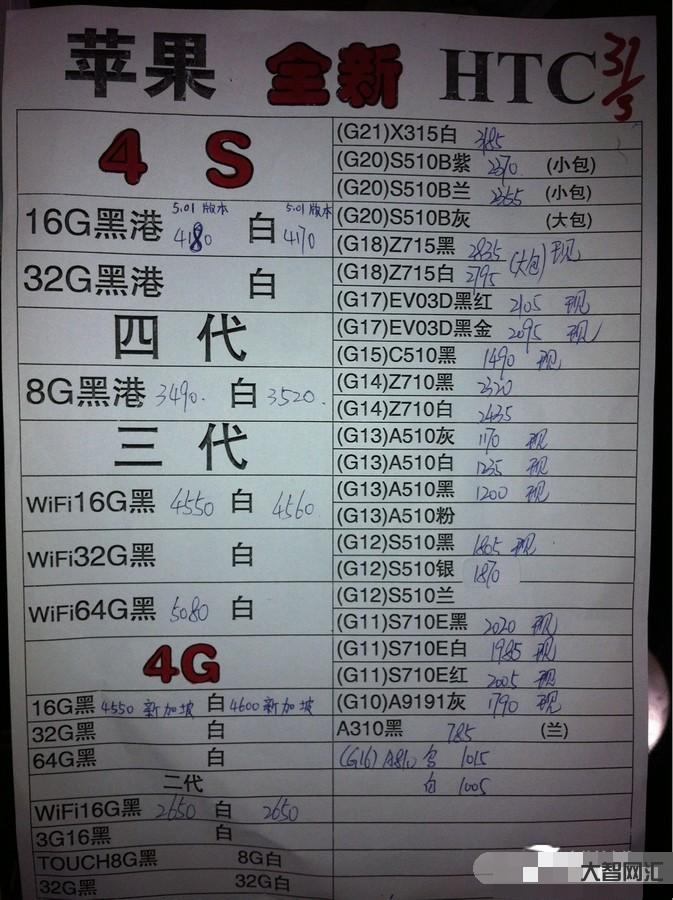 苹果 全新 HTC 31/3
4 S
5.01版本 5.01版本
16G黑港 4180 白 4170
32G黑港 白
四代
8G黑港 3490. 白 3520.
三代
WiFi16G黑 4550 白 4560.
WiFi32G黑 白
WiFi64G黑 5080 白
4G
16G黑 4550 新加坡 白 4600 新加坡
32G黑 白
64G黑 白
二代
WiFi16G黑 2650 白 2650
3G16黑 白
TOUCH8G黑 8G白
32G黑 32G白
(G21)X315白 3185
(G20)S510B紫 2370. (小包)
(G20)S510B兰 2355 (小包)
(G20)S510B灰 (大包)
(G18)Z715黑 2835 (大包) 现
(G18)Z715白 2795
(G17)EV03D黑红 2105 现
(G17)EV03D黑金 2095 现
(G15)C510黑 1490 现
(G14)Z710黑 2320
(G14)Z710白 2435
(G13)A510灰 1170 现
(G13)A510白 1235 现
(G13)A510黑 1200 现
(G13)A510粉
(G12)S510黑 1805 现
(G12)S510银 1870
(G12)S510兰
(G11)S710E黑 2020 现
(G11)S710E白 1985 现
(G11)S710E红 2005 现
(G10)A9191灰 1790 现
A310黑 785 (兰)
(G16) A810 1015
白 1005
大智网汇